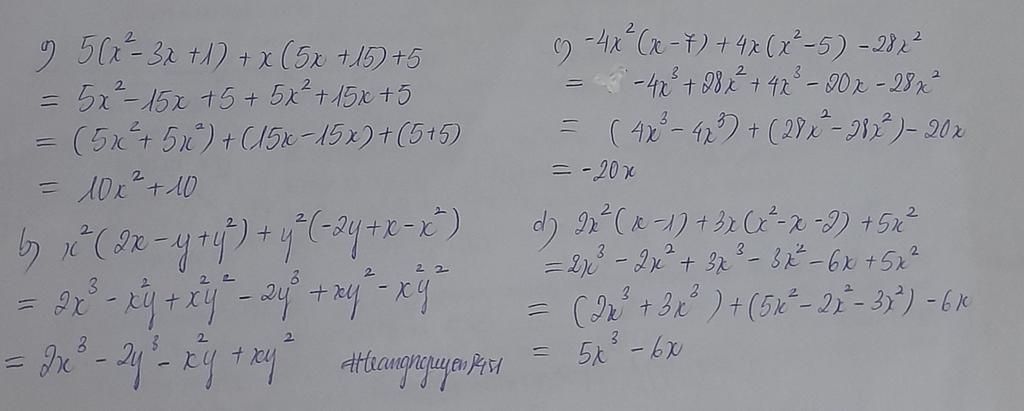 a) 5(x² - 3x + 1) + x(5x + 15) + 5
= 5x² - 15x + 5 + 5x² + 15x + 5
= (5x² + 5x²) + (15x - 15x) + (5+5)
= 10x² + 10
b) x²(2x - y + y²) + y²(-2y + x - x²)
= 2x³ - x²y + x²y² - 2y³ + xy² - x²y²
= 2x³ - 2y³ - x²y + xy²
c) -4x²(x - 7) + 4x(x² - 5) - 28x²
= -4x³ + 28x² + 4x³ - 20x - 28x²
= (4x³ - 4x³) + (28x² - 28x²) - 20x
= -20x
d) 2x²(x - 1) + 3x(x² - x - 2) + 5x²
= 2x³ - 2x² + 3x³ - 3x² - 6x + 5x²
= (2x³ + 3x³) + (5x² - 2x² - 3x²) - 6x
= 5x³ - 6x